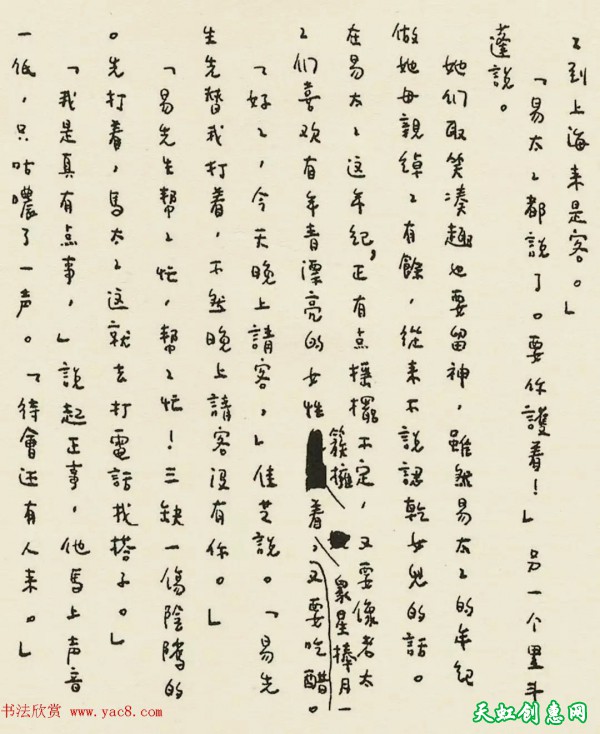 〻到上海来是客。」
「易太〻都說了。要你護着!」另一个黑斗
蓬說。
她们取笑凑趣也要留神,雖然易太〻的年紀
做她母親綽〻有餘,從来不說認乾女兒的話。
在易太〻這年紀,正有点摇擺不定,又要像老太
〻们喜欢有年青漂亮的女性簇擁着,眾星捧月一又要吃醋。
「好〻,今天晚上請客,」佳芝說。「易先
生先替我打着,不然晚上請客没有你。」
「易先生帮〻忙,帮〻忙!三缺一傷陰隲的
。先打着,馬太〻這就去打電話找搭子。」
「我是真有点事,」說起正事,他馬上声音
一低,只咕噥了一声。「待會还有人来。」
书法欣赏 www.yac8.com
天虹创意网